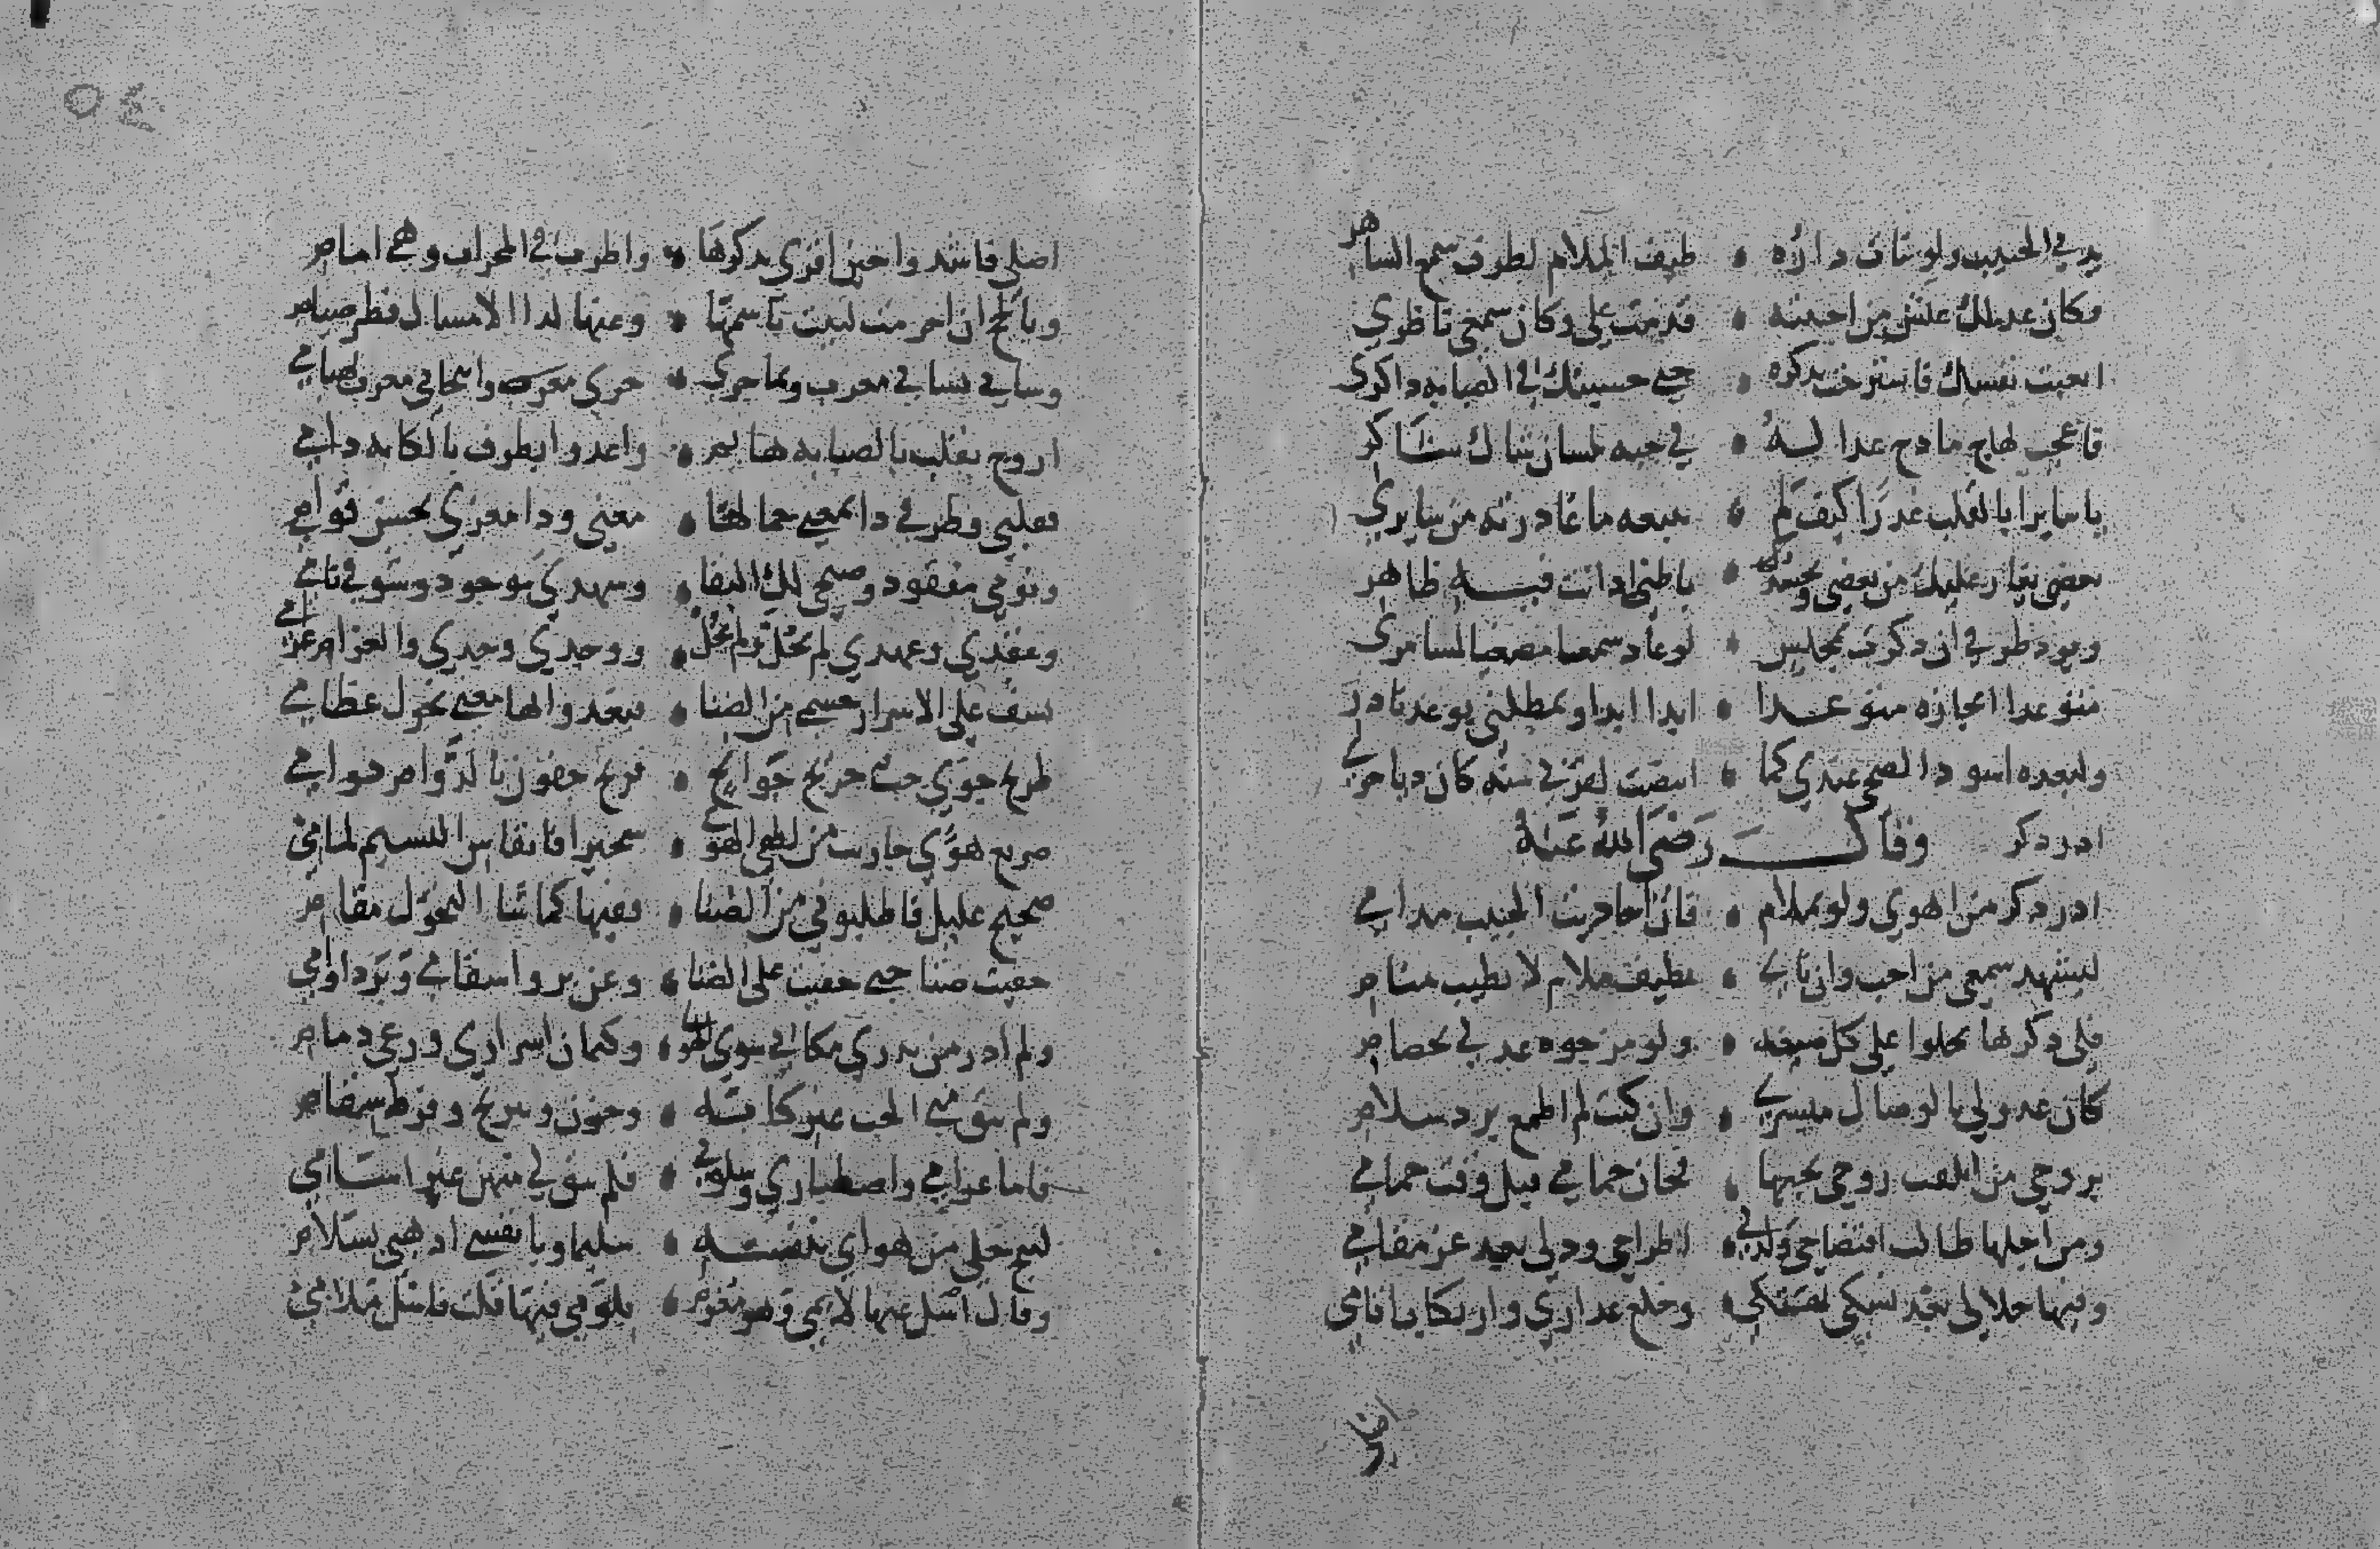 يدني الحبيب ولو تناءت داره • طيف الملام لطرف سمعي الساهر
فكان عذلك عيس من احببته • قدمت علي وكان سمعي ناظري
اتعبت نفسك فاسترحت بذكره • حتى حسبتك في الصبابه ذاكري
فاعجب لهاج مادح عذاله • في حبه بلسان شاك شاكر
يا سايرا بالقلب غدرا كيف لم • تتبعه ما غادرته من سايري
بعضي يغار عليك من بعضي ويحسد • باطني اذ انت فيه ظاهر
ويود طرفي ان ذكرت بمجلس • لو عاد سمعا مصغيا لمسامري
متوعدا انجازه متوعدا • ابدا ويمطلني بوعد نادر
ولبعده اسود الضحى عندي كما • ابيضت لقرب منه كان دياجري
ادر ذكر وقال رَضيَ الله عَنهُ
ادر ذكر من اهوى ولو بملام • فان احاديث الحبيب مدامي
ليشهد سمعي من احب وان ناى • بطيف ملام لا بطيف منام
فلي ذكرها يحلوا على كل صيغه • ولو مزجوه عذلي بخصام
كان عذولي بالوصال مبشري • وان كنت لم اطمع برد سلام
بروحي من اتلفت روحي بحبها • فحان حمامي قبل وقت حمامي
ومن اجلها طاب افتضاحي ولذ لي • اطراحي وذلي بعد عز مقامي
وفيها حلا لي بعد نسكي تهتكي • وخلع عذاري وارتكاب اثامي
اصلي
اصلي فاشدوا حين اقرى بذكرها • واطرب في المحراب وهي امام
وبالحج ان احرمت لبيت باسمها • وعنها لدا الامساك فطر صيام
وشاني بشاني معرب وبما جرى • جرى معرب وانتحابي معرب بهيامي
اروح بقلب بالصبابه هايم • واغدوا بطرف بالكابه دامي
فقلبي وطرفي ذا بمعنى جمالها • معنى وذا مغرى بحسن قوام
ونومي مفقود وصبحي لك البقا • وسهدي موجود وشوقي نامي
وعقدي وعهدي لم يحل ولم يحل • ووجدي وجدي والغرام غرامي
يشف على الاسرار جسمي من الضنا • فيغدوا بها معنى نحول عظامي
طريح جوى حب جريح جوانح • قريح جفون بالدوام دوامي
صريع هوى جاريت من لطفي الهوى • سحيرا فانفاس النسيم لمامي
صحيح عليل فاطلبوني من الضنا • ففيها كما شا النحول مقام
خفيت ضنا حتى خفيت على الضنا • وعن برو اسقامي وبرد اوامي
ولم ادر من يدري مكاني سوى الهوى • وكتمان اسراري ورعي ذمام
ولم يبق مني الحب غير كابه • وحزن وتبريح وفرط سقام
فاما غرامي واصطباري وسلوتي • فلم يبق لي منهن غير اسامي
لينج خلي من هواي بنفسه • سليما ويا نفسي اذهبي بسلام
وقال اسل عنها لايمي وهو مغرم • بلومي فيها قلت فاسل ملامي